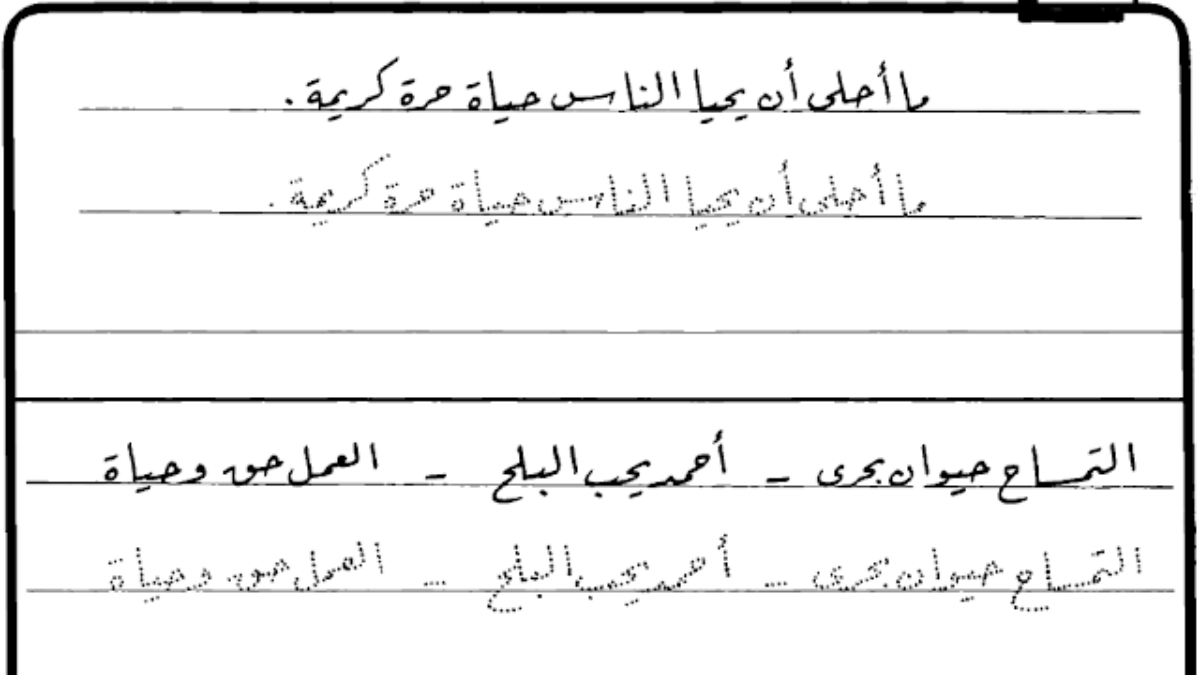 ما أحلى أن يحيا الناس حياة حرة كريمة .
ما أحلى أن يحيا الناس حياة حرة كريمة .
التمساح حيوان بحرى - أحمد يحب البلح - العمل حق وحياة
التمساح حيوان بحرى - أحمد يحب البلح - العمل حق وحياة